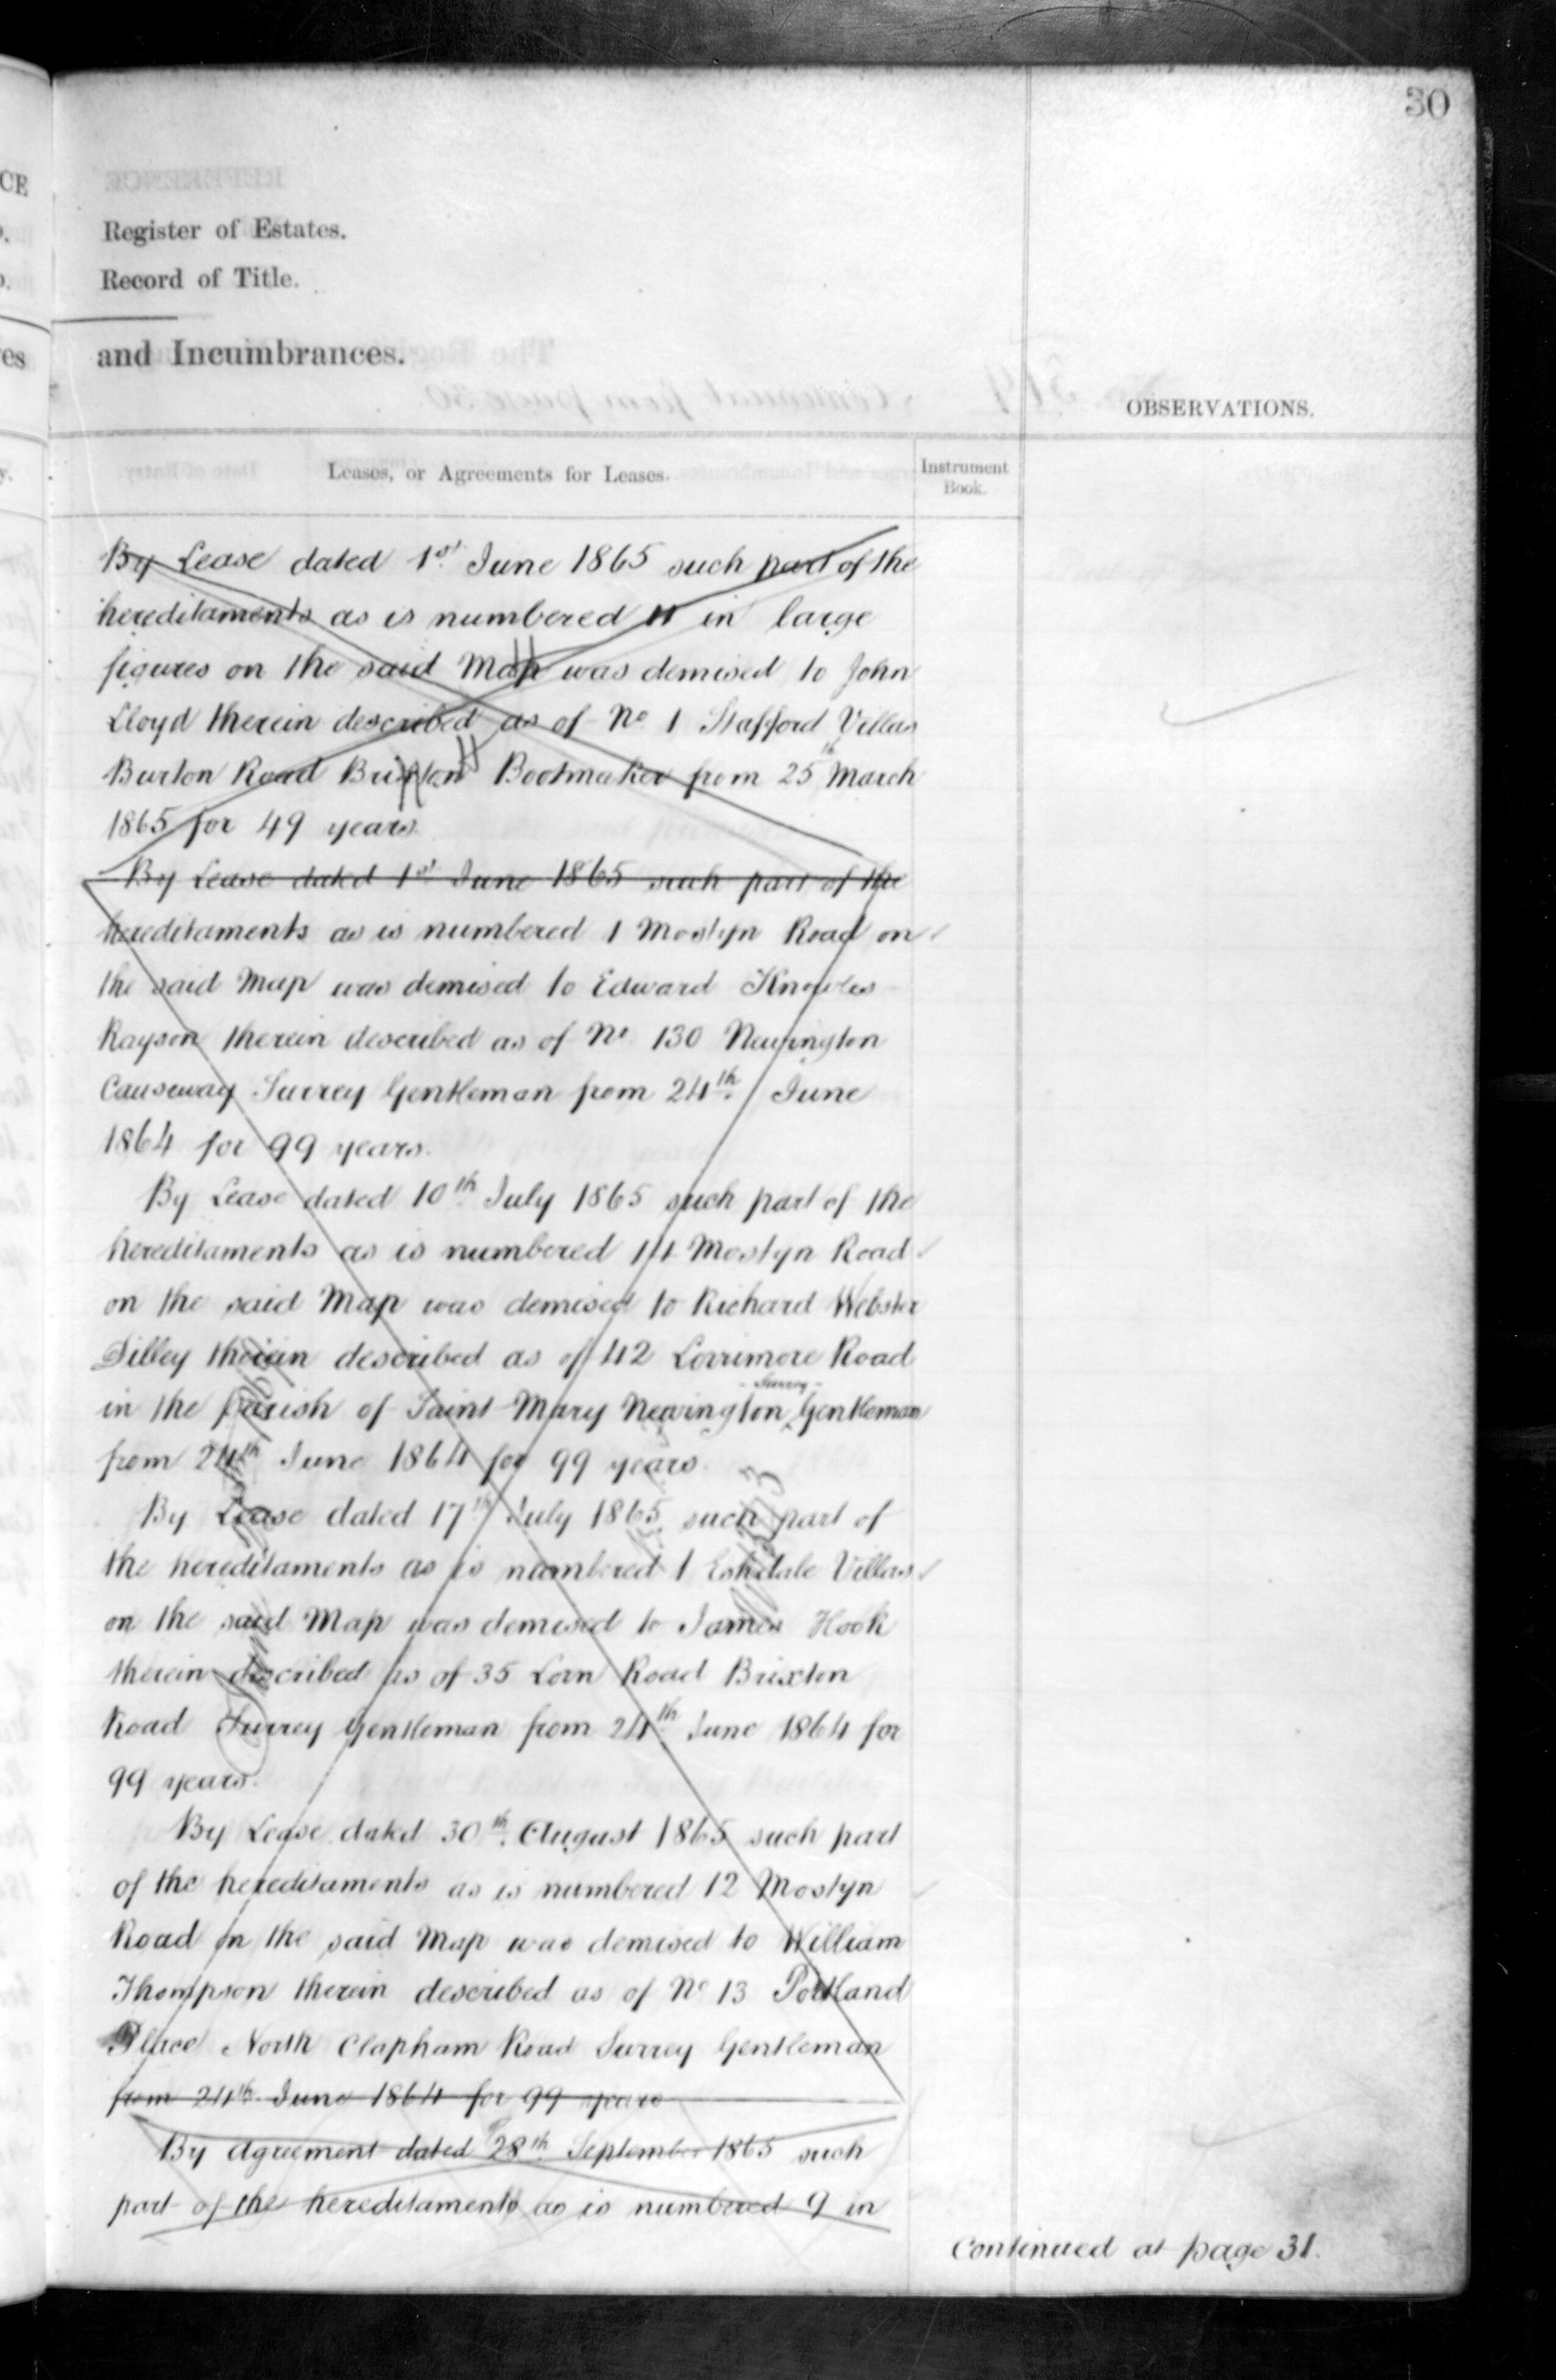 30
Register of Estates.
Record of Title.
and Incumbrances.
OBSERVATIONS.
Leases, or Agreements for Leases.
Instrument
Book.
By Lease dated 1st June 1865 such part of the
hereditaments as is numbered 11 in large
figures on the said Map was demised to John
Lloyd therein described as of No 1 Stafford Villas
Burton Road Brixton Bootmaker from 25th March
1865 for 49 years
By Lease dated 1st June 1865 such part of the
hereditaments as is numbered 1 Mostyn Road on
the said Map was demised to Edward Knowles
Rayson therein described as of No 130 Newington
Causeway Surrey Gentleman from 24th June
1864 for 99 years.
By Lease dated 10th July 1865 such part of the
hereditaments as is numbered 14 Mostyn Road
on the said Map was demised to Richard Webster
Dilley therein described as of 42 Lorrimore Road
in the parish of Saint Mary Newington Surrey Gentleman
from 24th June 1864 for 99 years
By Lease dated 17th July 1865 such part of
the hereditaments as is numbered 1 Eskdale Villas
on the said Map was demised to James Hook
therein described as of 35 Lorn Road Brixton
Road Surrey Gentleman from 24th June 1864 for
99 years.
By Lease dated 30th August 1865 such part
of the hereditaments as is numbered 12 Mostyn
Road on the said Map was demised to William
Thompson therein described as of No 13 Portland
Place North Clapham Road Surrey Gentleman
from 24th June 1864 for 99 years
By Agreement dated 28th September 1865 such
part of the hereditaments as is numbered 9 in
Continued at page 31.